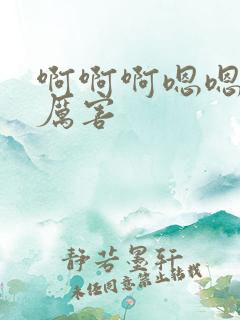 啊啊啊嗯嗯
厲害
静若墨轩
未经同意禁止转载